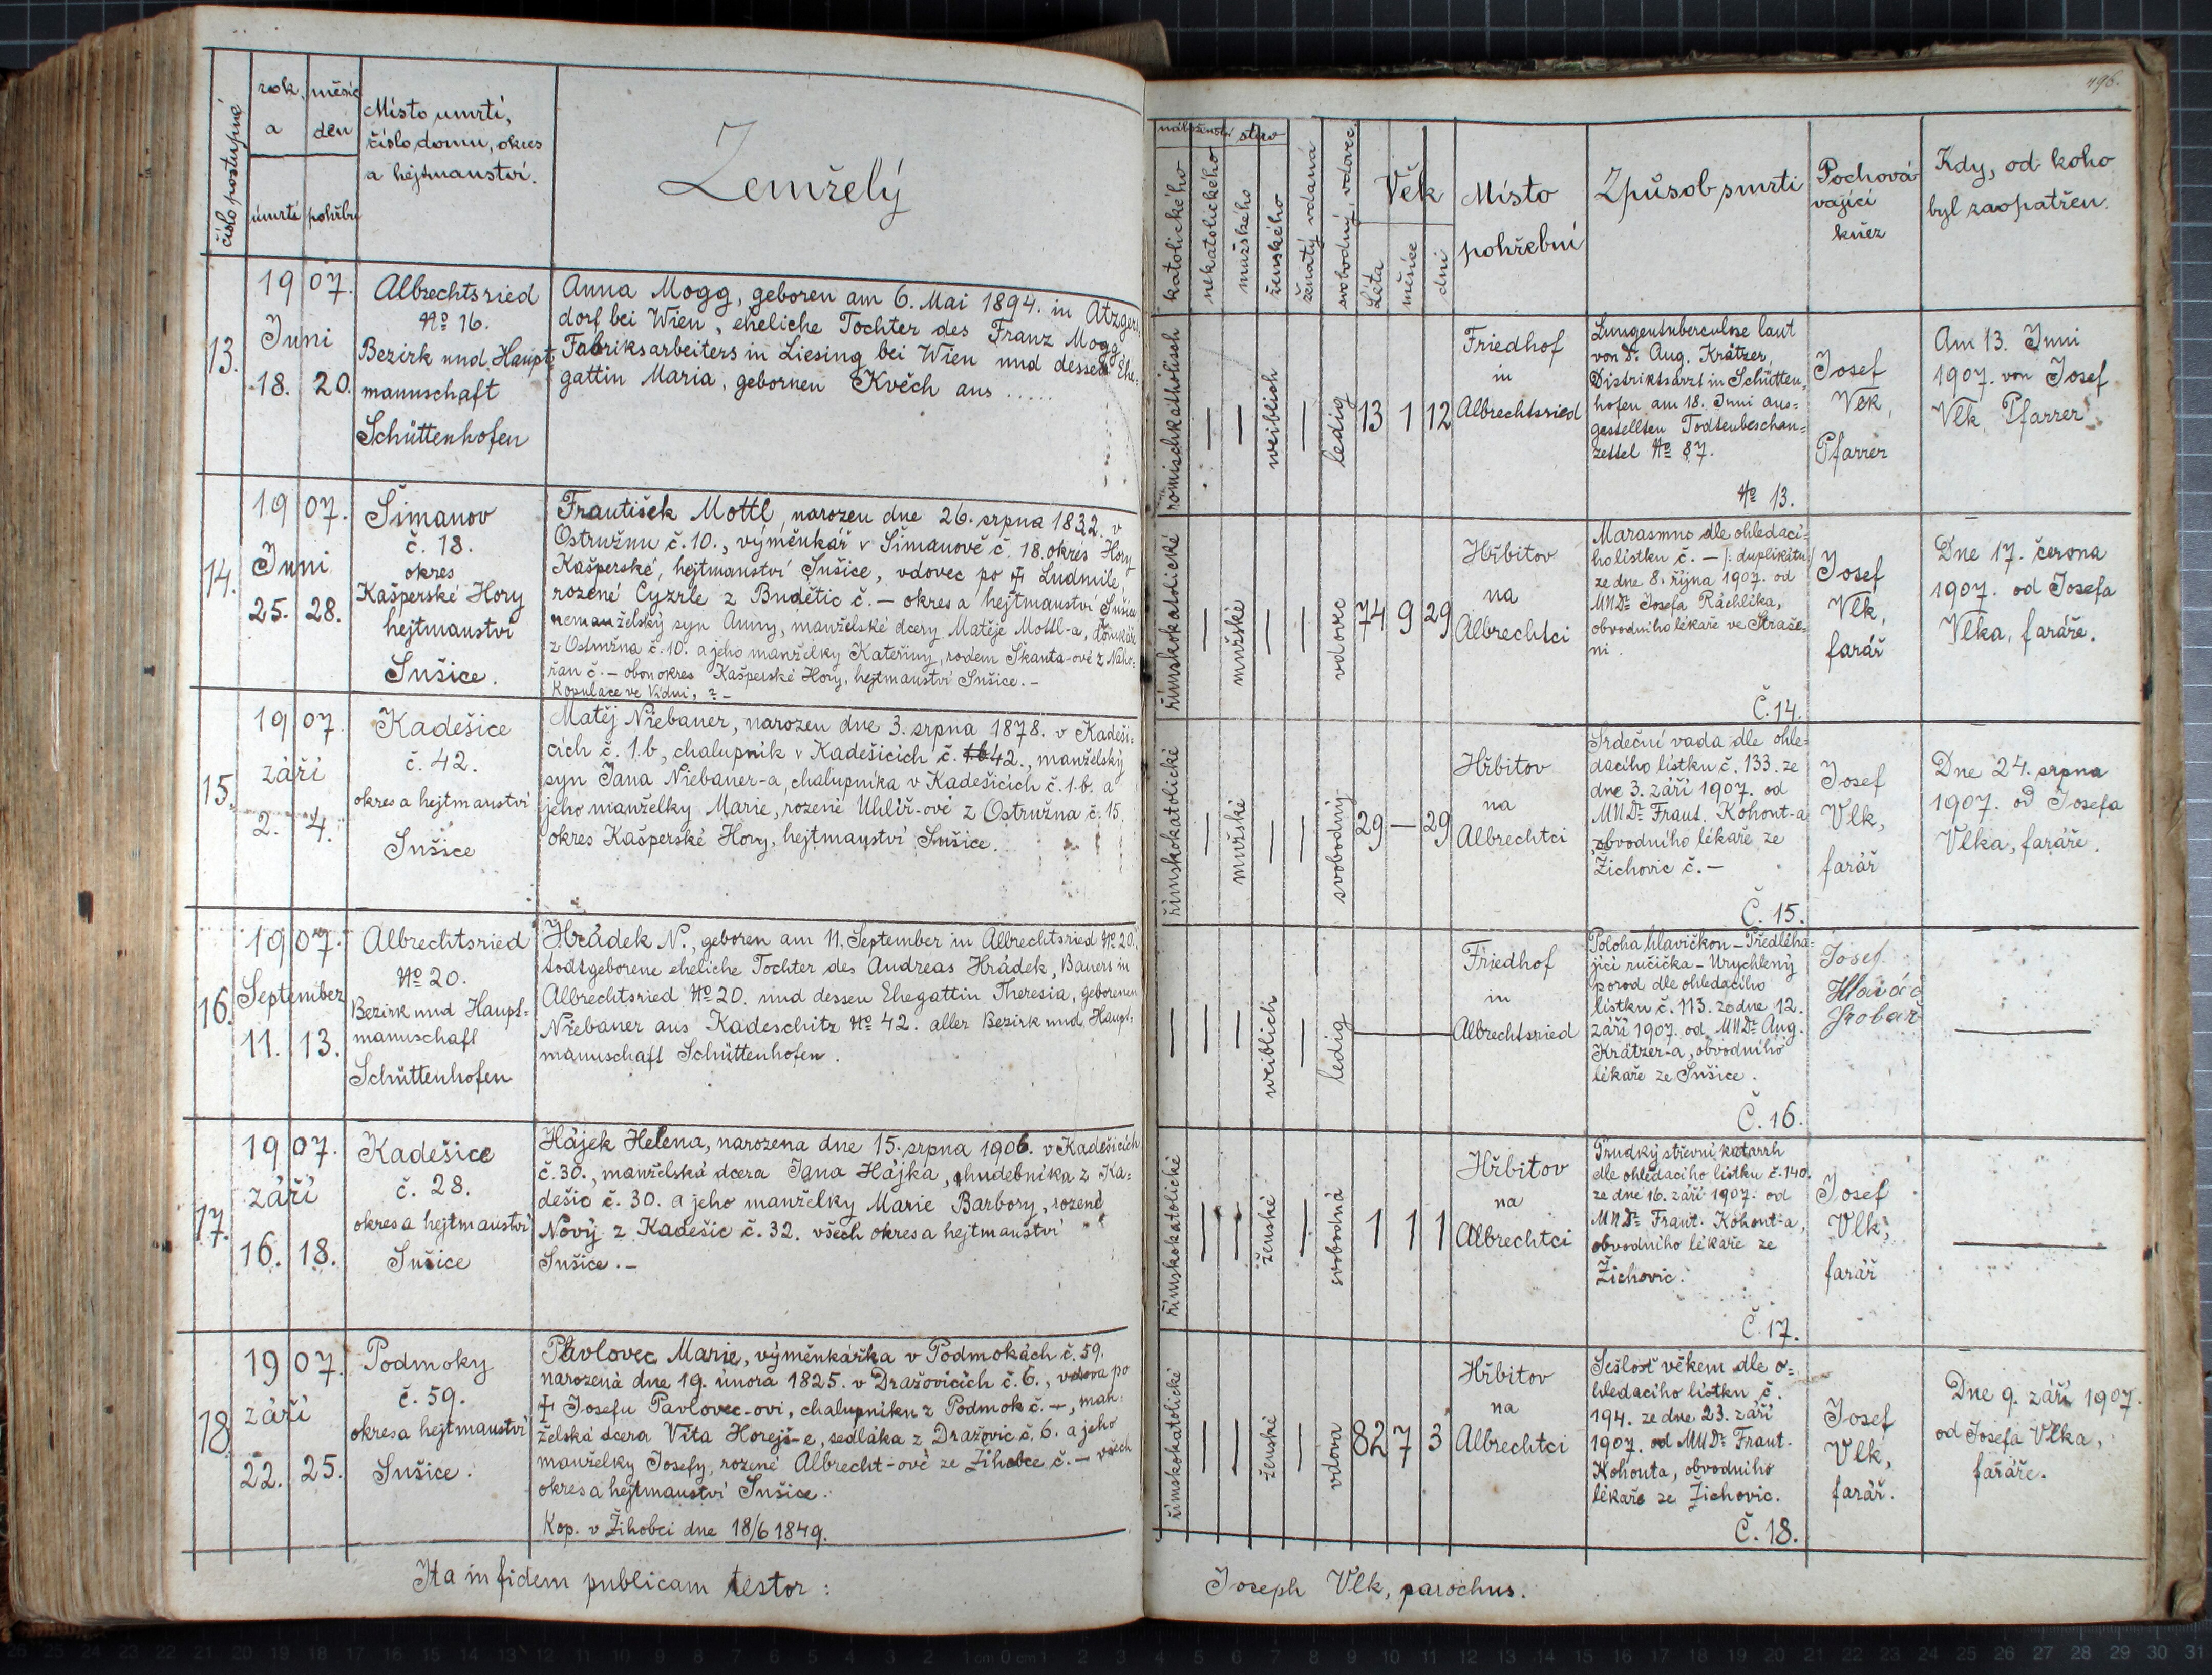 496.
číslo postupné
rok a
měsíc den
úmrtí
pohřbu
Místo umrtí,
číslo domu, okres
a hejtmanství.
Zemřelý
náboženství
stavo
katolického
nekatolického
mužského
ženského
ženatý, vdaná
svobodný, vdovec,
Věk
Léta
měsíce
dni
Místo
pohřební
Způsob smrti
Pochová-
vající
kněz
Kdy, od koho
byl zaopatřen.
13.
1907.
Juni
18. 20.
Albrechtsried
No 16.
Bezirk und Haupt-
mannschaft
Schüttenhofen
Anna Mogg, geboren am 6. Mai 1894. in Atzgers-
dorf bei Wien, eheliche Tochter des Franz Mogg
Fabriksarbeiters in Liesing bei Wien und dessen Ehe-
gattin Maria, gebornen Kvěch aus .....
römischkatholisch
—
—
weiblich
—
ledig
13 1 12
Friedhof
in
Albrechtsried
Lungentuberculose laut
von Dr. Aug. Krätzer,
Distriktsarzt in Schütten-
hofen am 18. Juni aus-
gestellten Todtenbeschau-
zettel No 87.
No 13.
Josef
Vlk,
Pfarrer
Am 13. Juni
1907. von Josef
Vlk, Pfarrer
14.
1907.
Juni
25. 28.
Šimanov
č. 18.
okres
Kašperské Hory
hejtmanství
Sušice.
František Mottl, narozen dne 26. srpna 1832. v
Ostružnu č. 10., výměnkář v Šimanově č. 18. okres Hory
Kašperské, hejtmanství Sušice, vdovec po ✝ Ludmile,
rozené Cyzrle z Budětic č. — okres a hejtmanství Sušice
nemanželský syn Anny, manželské dcery Matěje Mottl-a, domkáře
z Ostružna č. 10. a jeho manželky Kateřiny, rodem Skanta-ové z Naho-
řan č. — obou okres Kašperské Hory, hejtmanství Sušice. —
Kopulace ve Vídni, ? —
římskokatolické
—
mužské
—
—
vdovec
74 9 29
Hřbitov
na
Albrechtci
Marasmus dle ohledací-
ho lístku č. — /: duplikátu:/
ze dne 8. října 1907. od
MUDr. Josefa Ráchlíka,
obvodního lékaře ve Straše-
ni.
Č. 14.
Josef
Vlk,
farář
Dne 17. června
1907. od Josefa
Vlka, faráře.
15.
1907.
září
2. 4.
Kadešice
č. 42.
okres a hejtmanství
Sušice
Matěj Niebauer, narozen dne 3. srpna 1878. v Kadeši-
cích č. 1.b, chalupník v Kadešicích č. 1b 42., manželský
syn Jana Niebauer-a, chalupníka v Kadešicích č. 1.b. a
jeho manželky Marie, rozené Uhlíř-ové z Ostružna č. 15.
okres Kašperské Hory, hejtmanství Sušice.
římskokatolické
—
mužské
—
—
svobodný
29 — 29
Hřbitov
na
Albrechtci
Srdeční vada dle ohle-
dacího lístku č. 133. ze
dne 3. září 1907. od
MUDr. Frant. Kohout-a
obvodního lékaře ze
Žichovic č. —
Č. 15.
Josef
Vlk,
farář
Dne 24. srpna
1907. od Josefa
Vlka, faráře.
16.
1907.
September
11. 13.
Albrechtsried
No 20.
Bezirk und Haupt-
mannschaft
Schüttenhofen
Hrádek N., geboren am 11. September in Albrechtsried No 20.,
todtgeborene eheliche Tochter des Andreas Hrádek, Bauers in
Albrechtsried No 20. und dessen Ehegattin Theresia, geborenen
Niebauer aus Kadeschitz No 42. aller Bezirk und Haupt-
mannschaft Schüttenhofen.
—
—
—
weiblich
—
ledig
—
Friedhof
in
Albrechtsried
Poloha hlavičkou — Předléha-
jící ručička — Urychlený
porod dle ohledacího
lístku č. 113. ze dne 12.
září 1907. od MUDr. Aug.
Krätzer-a, obvodního
lékaře ze Sušice.
Č. 16.
Josef
Hlaváč
hrobař
—
17.
1907.
září
16. 18.
Kadešice
č. 28.
okres a hejtmanství
Sušice
Hájek Helena, narozena dne 15. srpna 1906. v Kadešicích
č. 30., manželská dcera Jana Hájka, hudebníka z Ka-
dešic č. 30. a jeho manželky Marie Barbory, rozené
Nový z Kadešic č. 32. všech okres a hejtmanství
Sušice. —
římskokatolické
—
—
ženské
—
svobodná
1 1 1
Hřbitov
na
Albrechtci
Prudký střevní katarrh
dle ohledacího lístku č. 140.
ze dne 16. září 1907. od
MUDr. Frant. Kohout-a,
obvodního lékaře ze
Žichovic.
Č. 17.
Josef
Vlk,
farář
—
18.
1907.
září
22. 25.
Podmoky
č. 59.
okres a hejtmanství
Sušice.
Pavlovec Marie, výměnkářka v Podmokách č. 59.
narozená dne 19. února 1825. v Dražovicích č. 6., vdova po
✝ Josefu Pavlovec-ovi, chalupníku z Podmok č. —, man-
želská dcera Víta Horejš-e, sedláka z Dražovic č. 6. a jeho
manželky Josefy, rozené Albrecht-ové ze Žihobce č. — všech
okres a hejtmanství Sušice.
Kop. v Žihobci dne 18/6 1849.
římskokatolické
—
—
ženské
—
vdova
82 7 3
Hřbitov
na
Albrechtci
Sešlost věkem dle o-
hledacího lístku č.
194. ze dne 23. září
1907. od MUDr. Frant.
Kohouta, obvodního
lékaře ze Žichovic.
Č. 18.
Josef
Vlk,
farář.
Dne 9. září 1907.
od Josefa Vlka,
faráře.
Ita in fidem publicam testor:
Joseph Vlk, parochus.